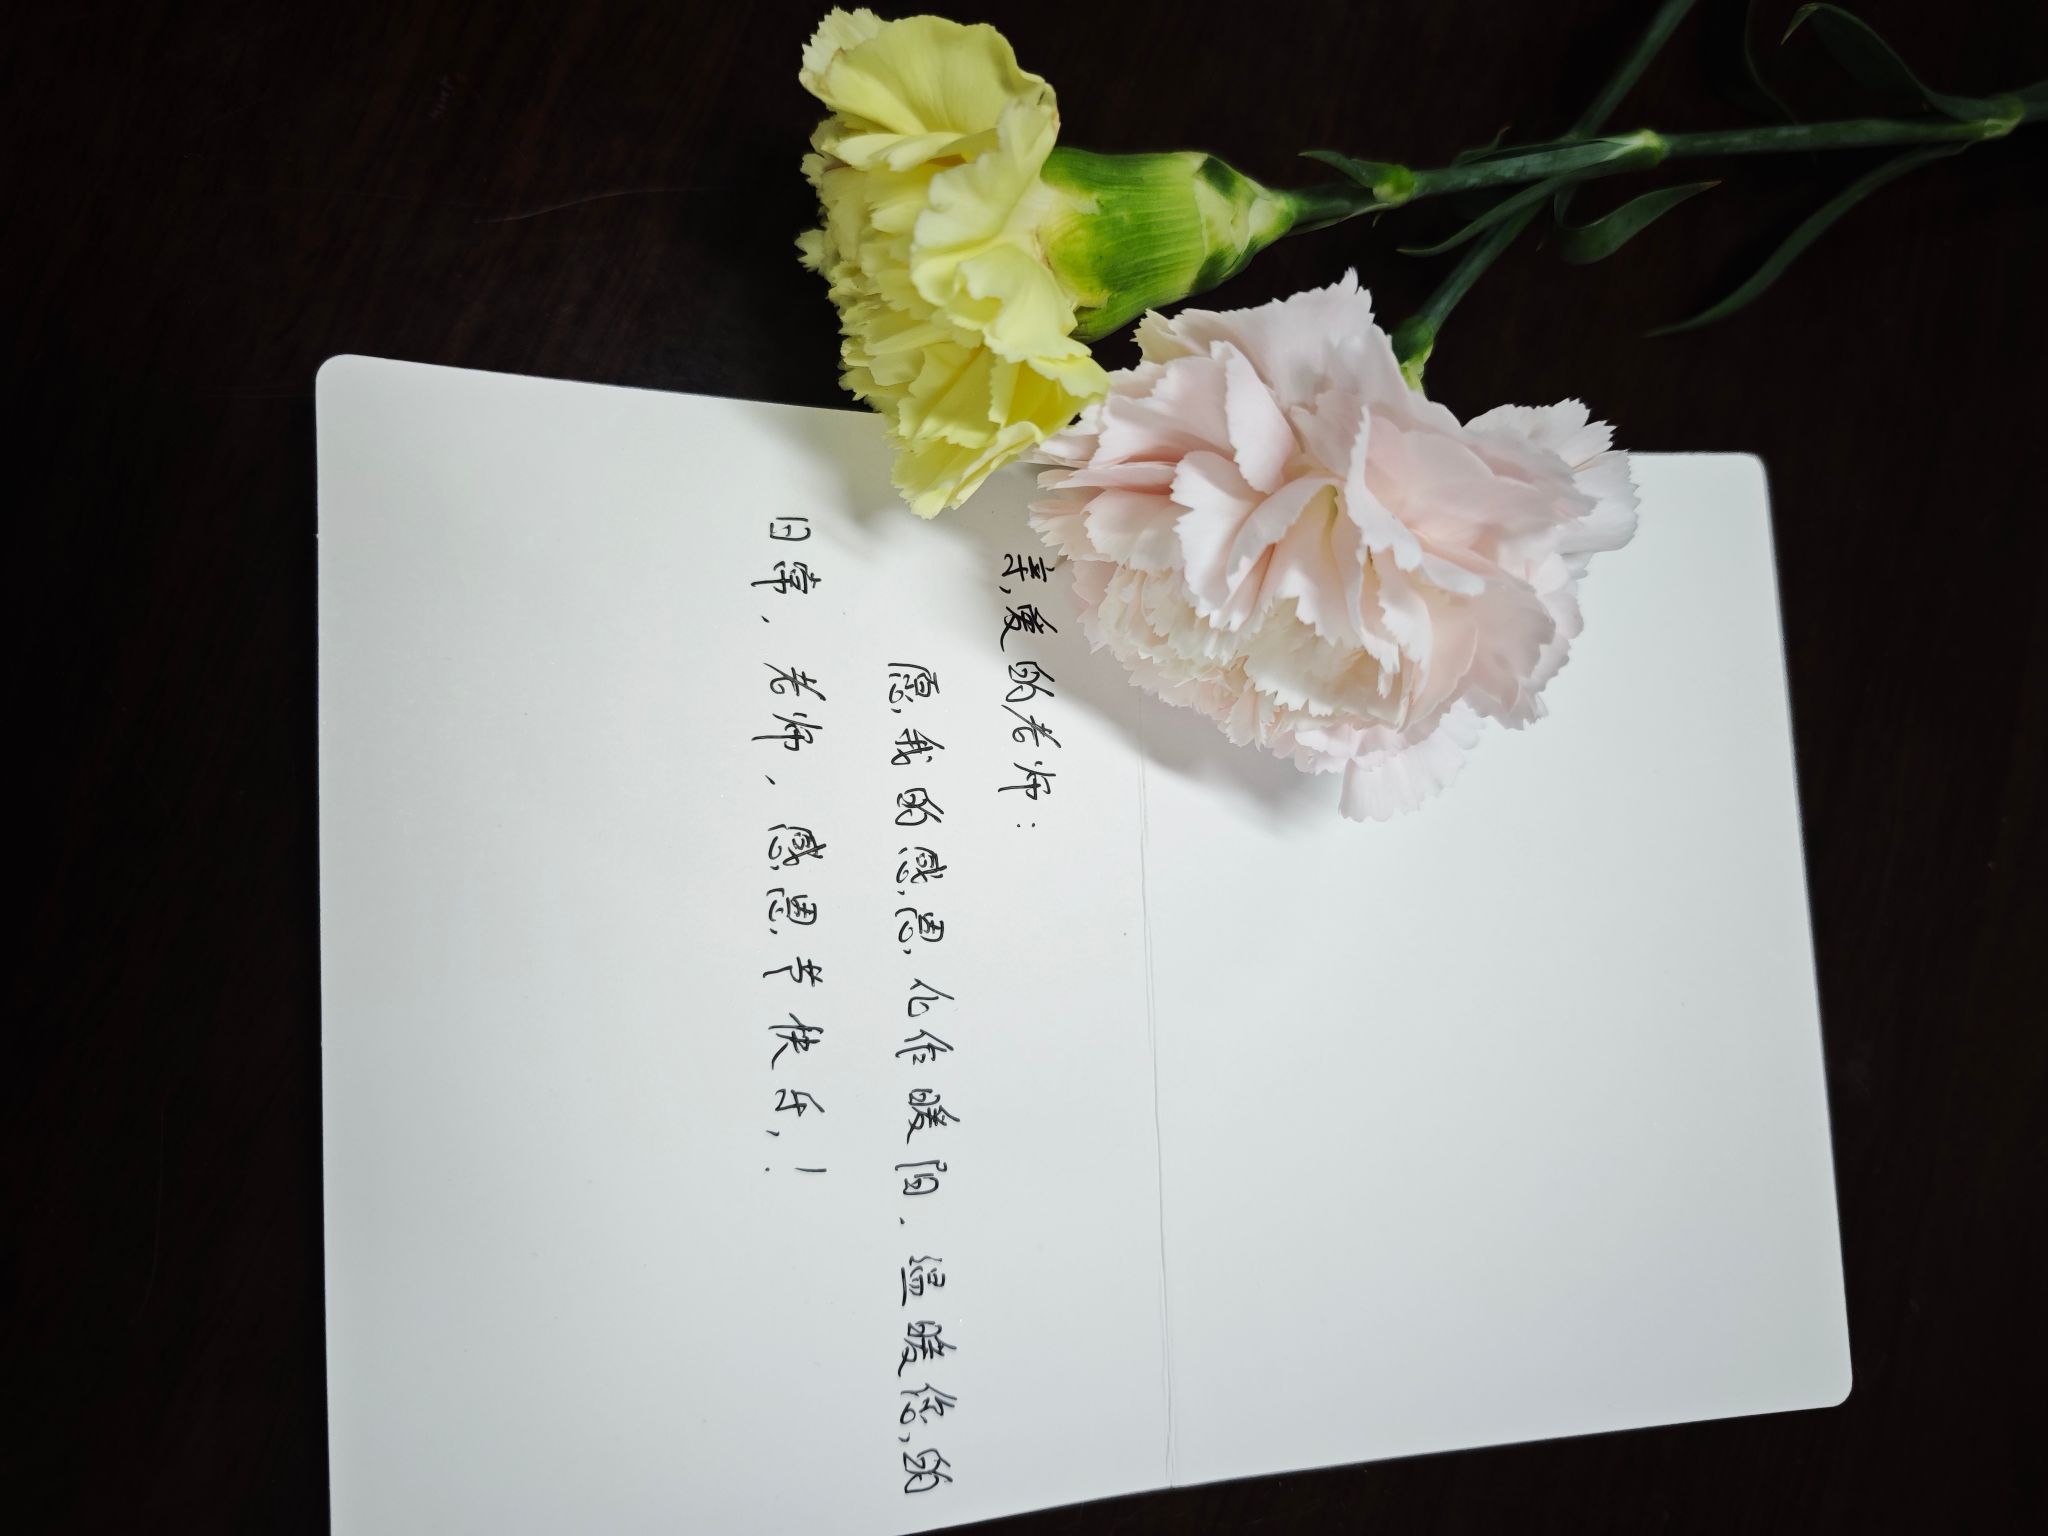 亲爱的老师：
愿我的感恩化作暖阳，温暖您的
日常，老师，感恩节快乐！